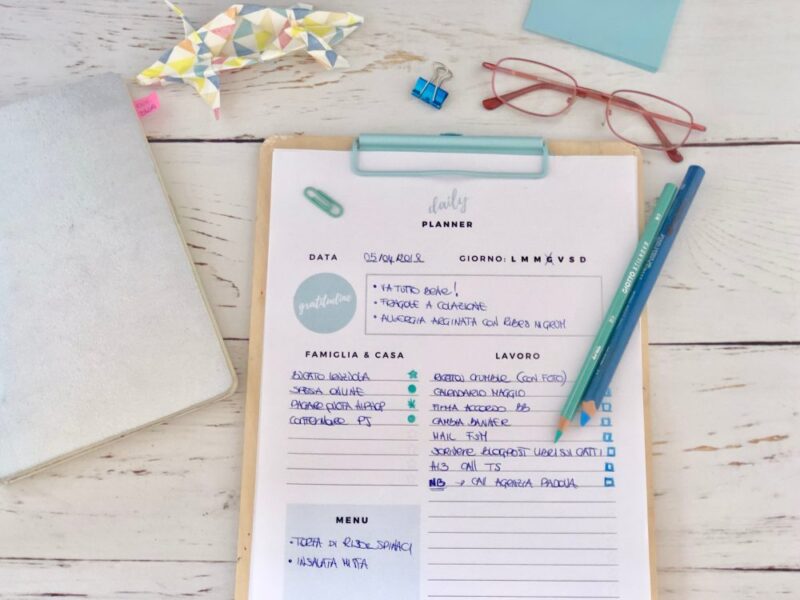 daily
PLANNER
DATA 05/04/2018 GIORNO: L M M G V S D
gratitudine
• VA TUTTO BENE!
• FRAGOLE A COLAZIONE
• ALLERGIA ARGINATA CON RIBES NIGRUM
FAMIGLIA & CASA
BUCATO LENZUOLA
SPESA ONLINE
PAGARE QUOTA HIPHOP
PJ
LAVORO
RICETTA CRUMBLE (CON FOTO)
CALENDARIO MAGGIO
FIRMA ACCORDO BB
CAMBIA BANNER
MAIL FSM
SCRIVERE BLOGPOST LIBRI SUI GATTI
CALL TS
NB → CALL AGENZIA PADOVA
MENU
• TORTA DI RISO E SPINACI
• INSALATA MISTA
GIOTTO STILNOVO